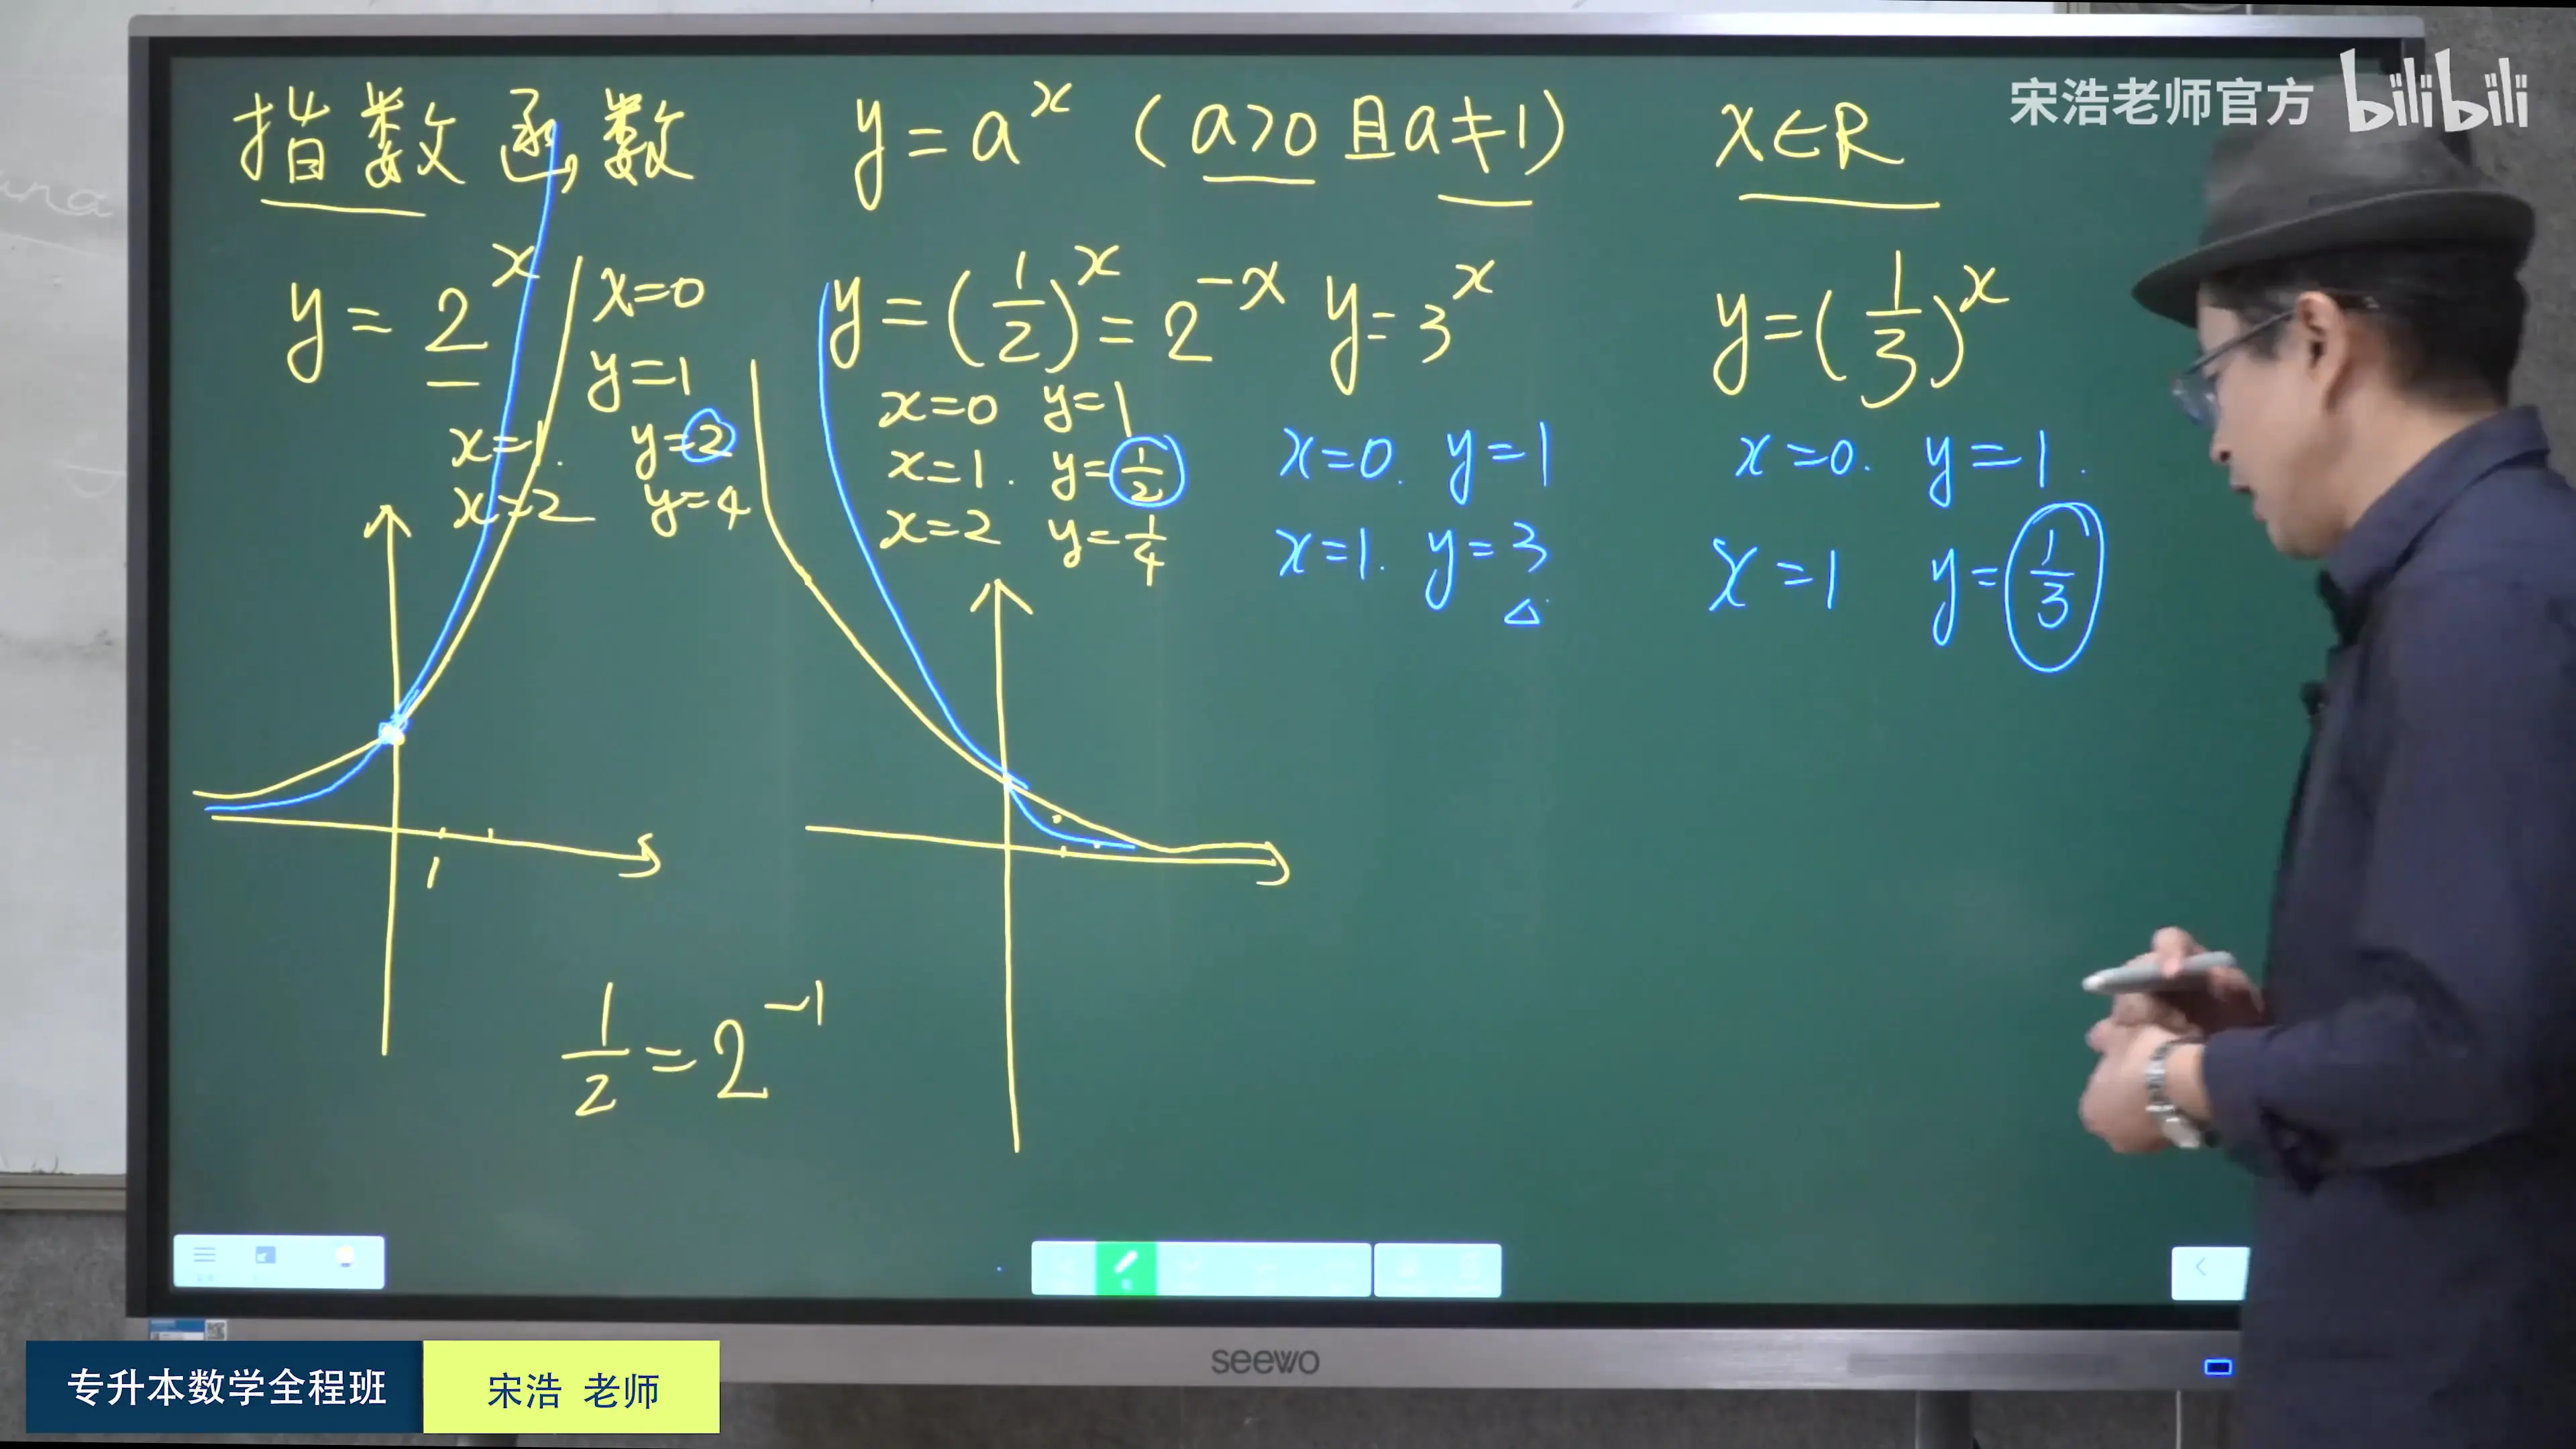 宋浩老师官方 bilibili
指数函数 y=aˣ (a>0且a≠1) x∈R
y=2ˣ
x=0
y=1
x=1. y=2
x=2 y=4
y=(1/2)ˣ=2⁻ˣ
x=0 y=1
x=1. y=1/2
x=2 y=1/4
y=3ˣ
x=0. y=1
x=1. y=3
y=(1/3)ˣ
x=0. y=1.
x=1 y=1/3
1
1/2=2⁻¹
seewo
专升本数学全程班 宋浩 老师